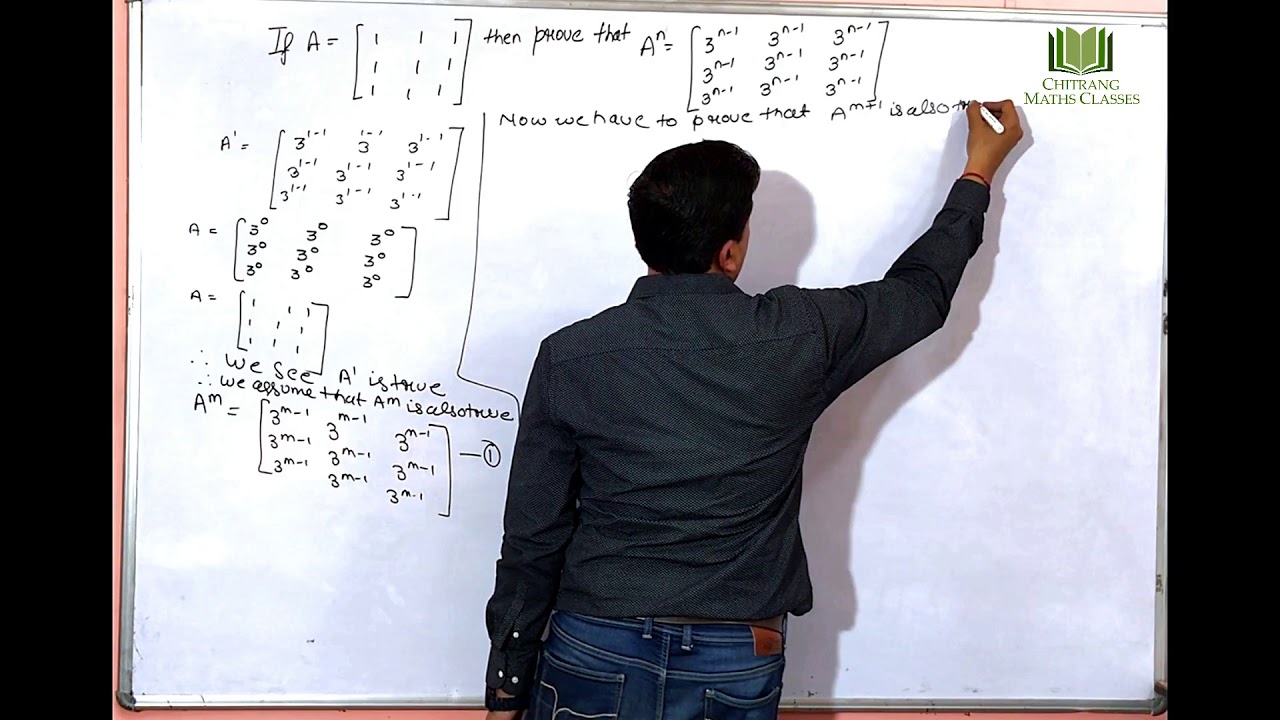 If A = [ 1 1 1 ] then prove that Aⁿ = [ 3ⁿ⁻¹ 3ⁿ⁻¹ 3ⁿ⁻¹ ]
1 1 1 3ⁿ⁻¹ 3ⁿ⁻¹ 3ⁿ⁻¹
1 1 1 3ⁿ⁻¹ 3ⁿ⁻¹ 3ⁿ⁻¹
CHITRANG
MATHS CLASSES
A¹ = [ 3¹⁻¹ 3¹⁻¹ 3¹⁻¹ ]
3¹⁻¹ 3¹⁻¹ 3¹⁻¹
3¹⁻¹ 3¹⁻¹ 3¹⁻¹
A = [ 3⁰ 3⁰ 3⁰ ]
3⁰ 3⁰ 3⁰
3⁰ 3⁰ 3⁰
A = [ 1 1 1 ]
1 1 1
1 1 1
∴ We see A¹ is true
∴ we assume that Aᵐ is also true
Aᵐ = [ 3ᵐ⁻¹ 3ᵐ⁻¹ 3ᵐ⁻¹ ] — ①
3ᵐ⁻¹ 3ᵐ⁻¹ 3ᵐ⁻¹
3ᵐ⁻¹ 3ᵐ⁻¹ 3ᵐ⁻¹
Now we have to prove that Aᵐ⁺¹ is also